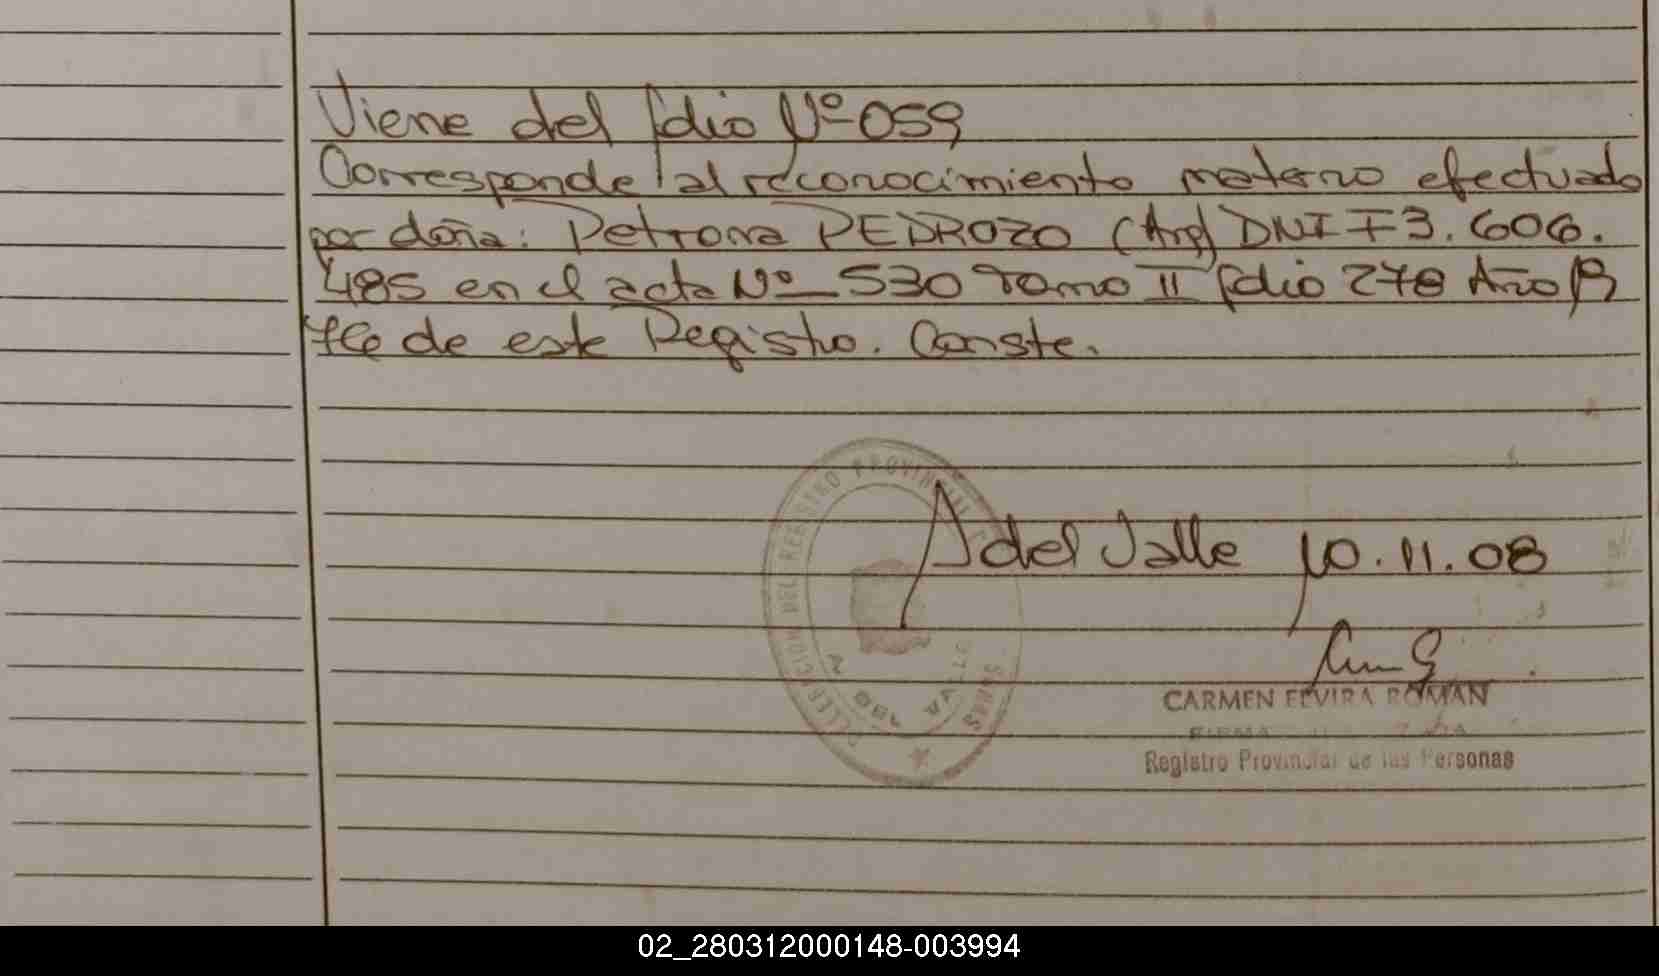 Viene del folio Nº 059
Corresponde al reconocimiento materno efectuado
por doña: Petrona PEDROZO (Arg) DNI F3.606.
485 en el acta Nº 530 Tomo II folio 278 Año 19
76 de este Registro. Conste.
A del Valle 10.11.08
CARMEN ELVIRA ROMAN
Registro Provincial de las Personas
DELEGACION DEL REGISTRO PROVINCIAL
02_280312000148-003994